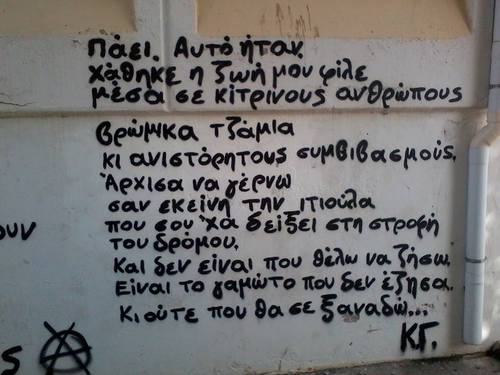 Πάει. Αυτό ήταν.
Χάθηκε η ζωή μου φίλε
μέσα σε κίτρινους ανθρώπους
βρώμικα τζάμια
κι ανιστόρητους συμβιβασμούς.
Άρχισα να γέρνω
σαν εκείνη την ιτιούλα
που σου 'χα δείξει στη στροφή
του δρόμου.
Και δεν είναι που θέλω να ζήσω.
Είναι το γαμώτο που δεν έζησα.
Κι ούτε που θα σε ξαναδώ...
Κ.Γ.